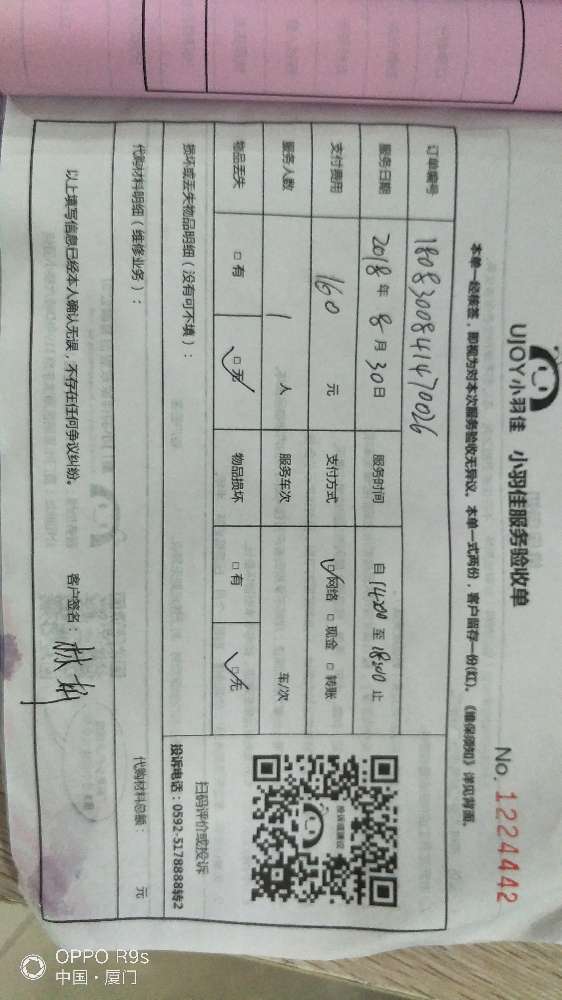 UJOY小羽佳 小羽佳服务验收单
No. 1224442
本单一经核签，即视为对本次服务验收无异议。本单一式两份，客户留存一份(红)。《维保须知》详见背面。
订单编号 1808300841470026
服务日期 2018年 8月 30日 服务时间 自 14:00 至 18:00 止
支付费用 160 元 支付方式 ☑网络 □现金 □转账
服务人数 1 人 服务车次 车/次
物品丢失 □有 ☑无 物品损坏 □有 ☑无
投诉或建议
扫码评价或投诉
投诉电话：0592-5178888转2
损坏或丢失物品明细（没有可不填）：
代购材料明细（维修业务）： 代购材料总额： 元
以上填写信息已经本人确认无误，不存在任何争议纠纷。 客户签名：林
OPPO R9s
中国·厦门